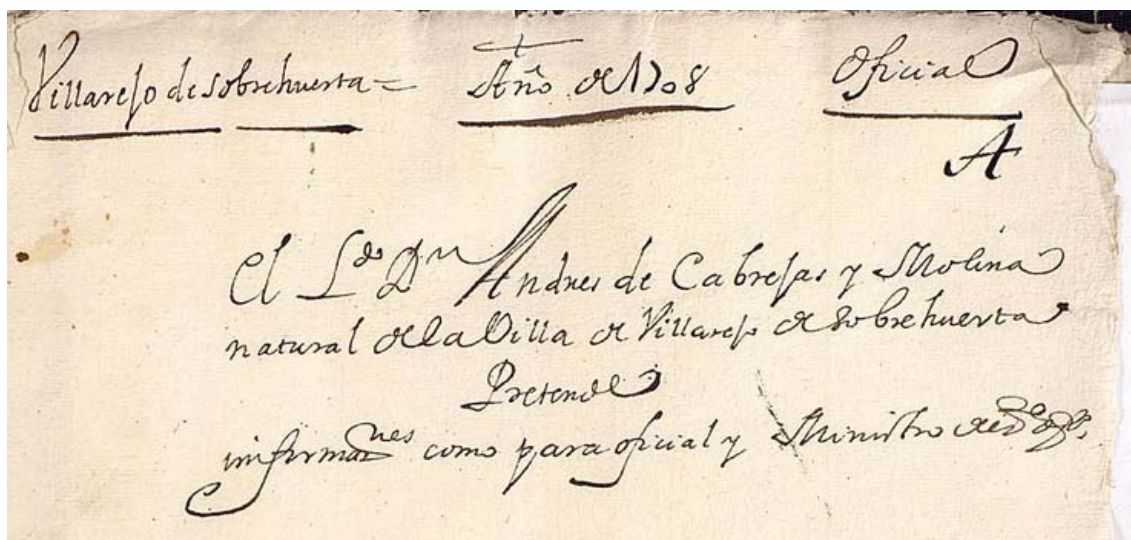 Villarejo de sobrehuerta = Año de 1708 Oficial
A
El Ldo Dn Andres de Cabrejas y Molina
natural de la Villa de Villarejo de sobrehuerta
Pretende
informaznes como para oficial y Ministro de